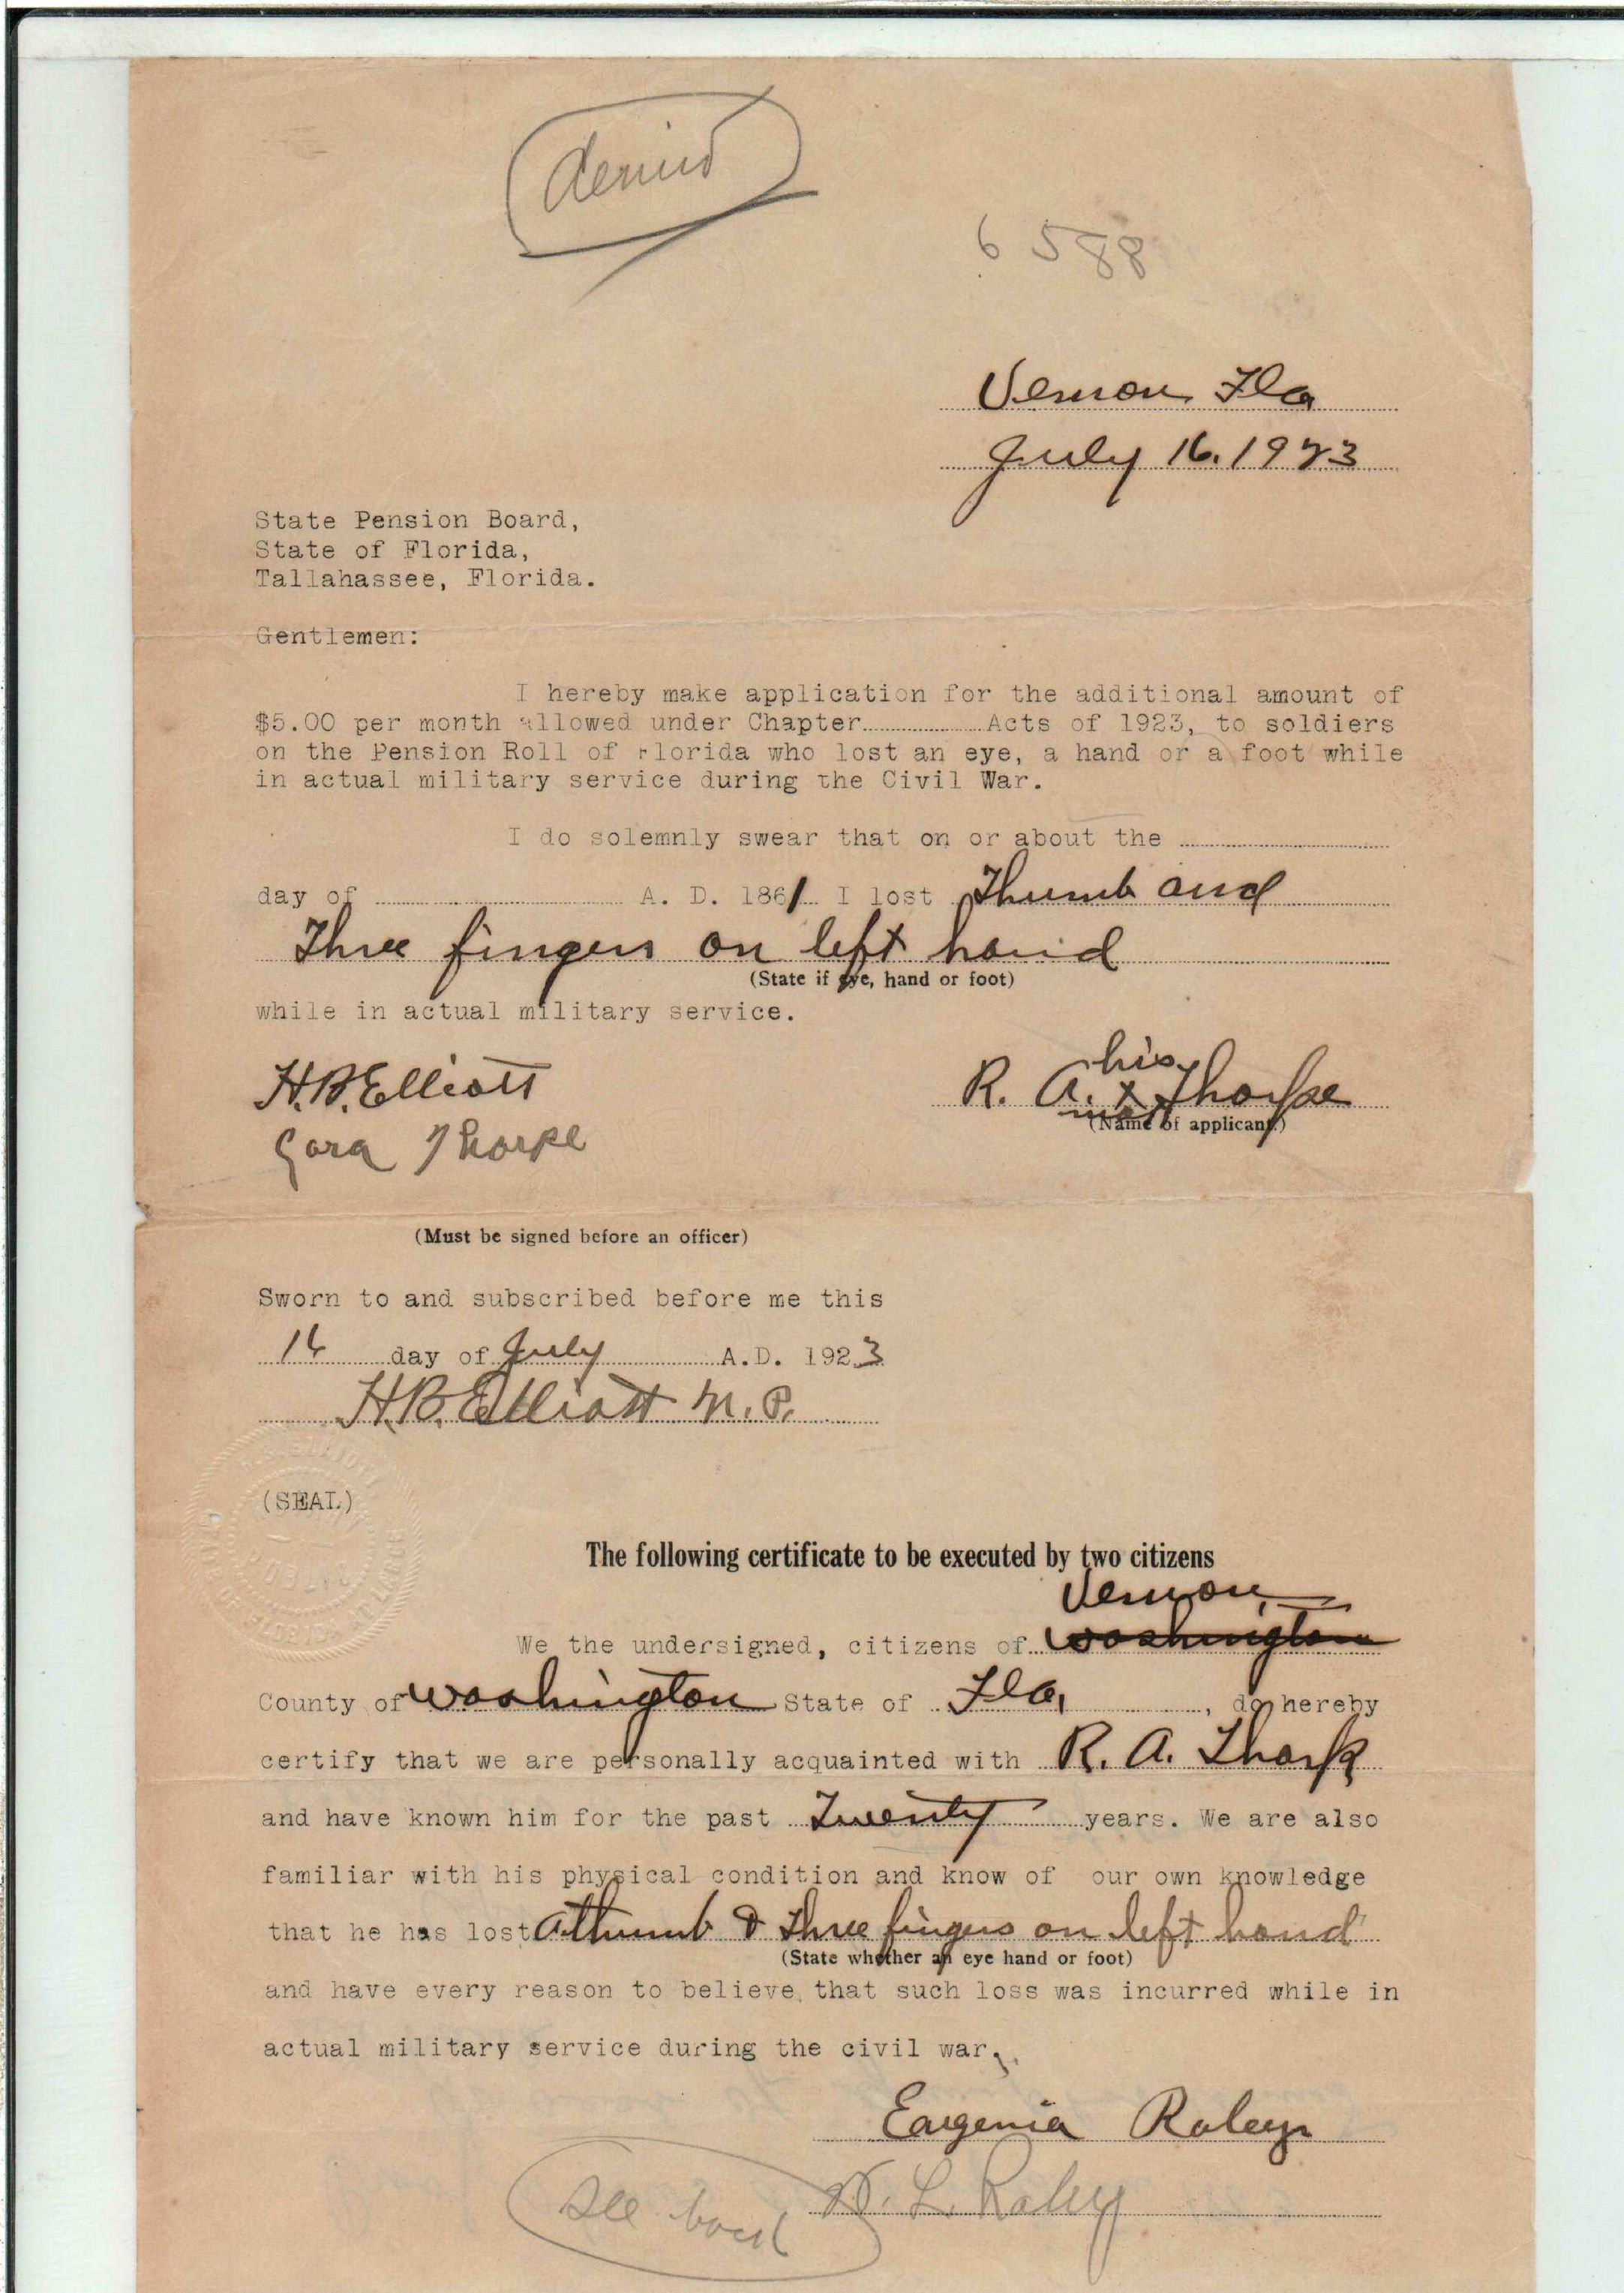 denied
6588
Vernon Fla
July 16. 1923
State Pension Board,
State of Florida,
Tallahassee, Florida.
Gentlemen:
I hereby make application for the additional amount of
$5.00 per month allowed under Chapter Acts of 1923, to soldiers
on the Pension Roll of Florida who lost an eye, a hand or a foot while
in actual military service during the Civil War.
I do solemnly swear that on or about the
day of A. D. 1861 I lost Thumb and
Three fingers on left hand
(State if eye, hand or foot)
while in actual military service.
his
H.B. Elliott R. A. x Thorpe
mark
(Name of applicant)
Thorpe
(Must be signed before an officer)
Sworn to and subscribed before me this
16 day of July A.D. 1923
H.B. Elliott N.P.
(SEAL)
The following certificate to be executed by two citizens
Vernon,
We the undersigned, citizens of Washington
County of Washington State of Fla, , do hereby
certify that we are personally acquainted with R. A. Thorp
and have known him for the past Twenty years. We are also
familiar with his physical condition and know of our own knowledge
that he has lost A thumb & three fingers on left hand
(State whether an eye hand or foot)
and have every reason to believe that such loss was incurred while in
actual military service during the civil war.
Eargenia Raley
L. Raley
See back